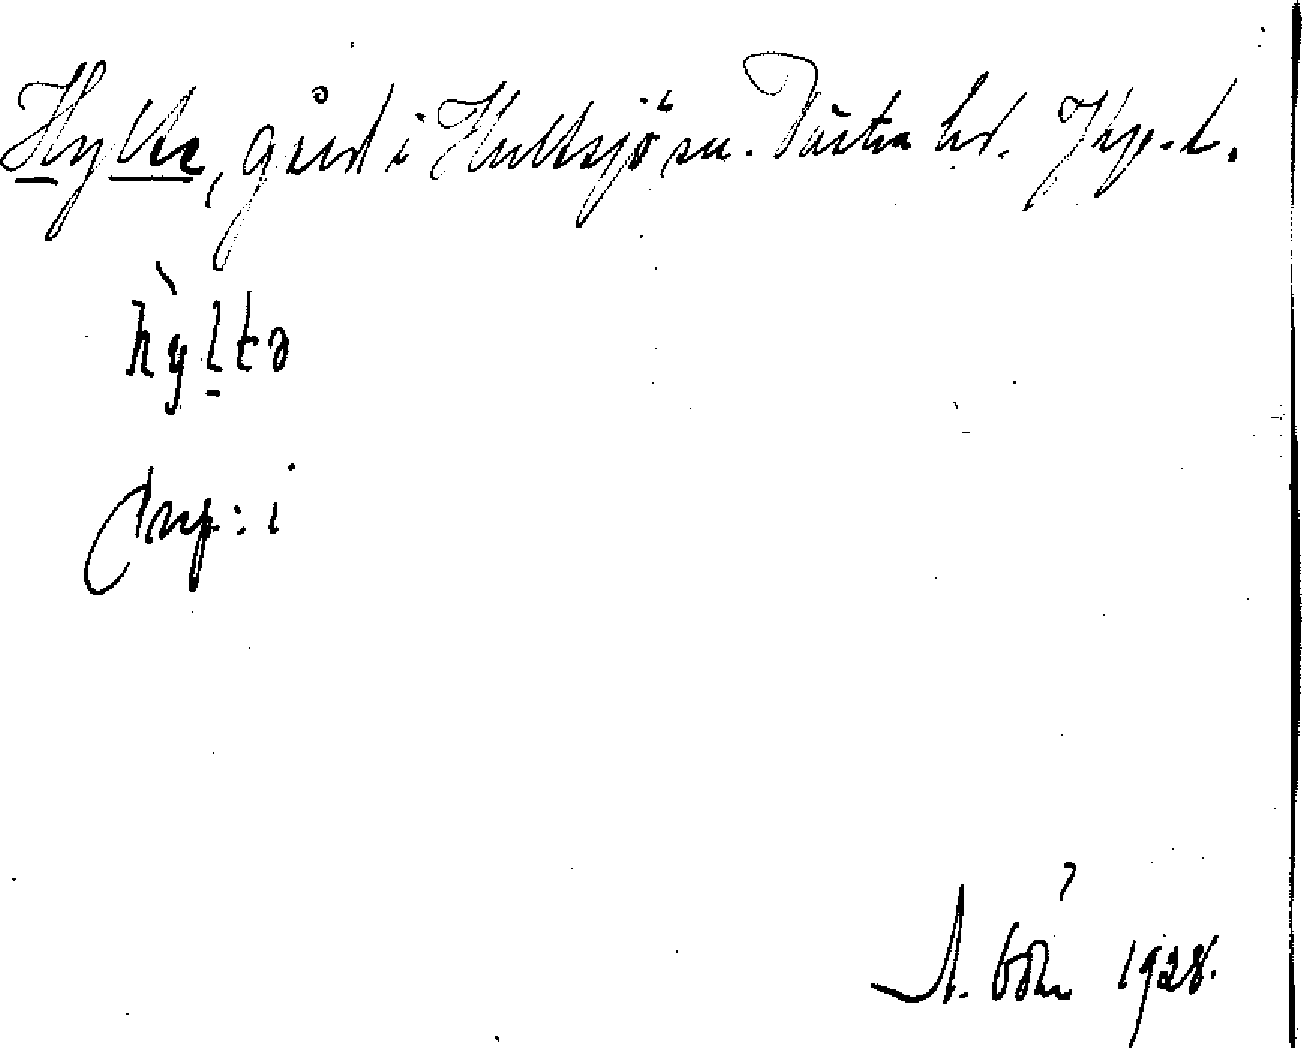 Hylte, gård i Hultsjö sn. Västra hd. Jkp. l.
hỳltə
Prep: i
A. 1928.